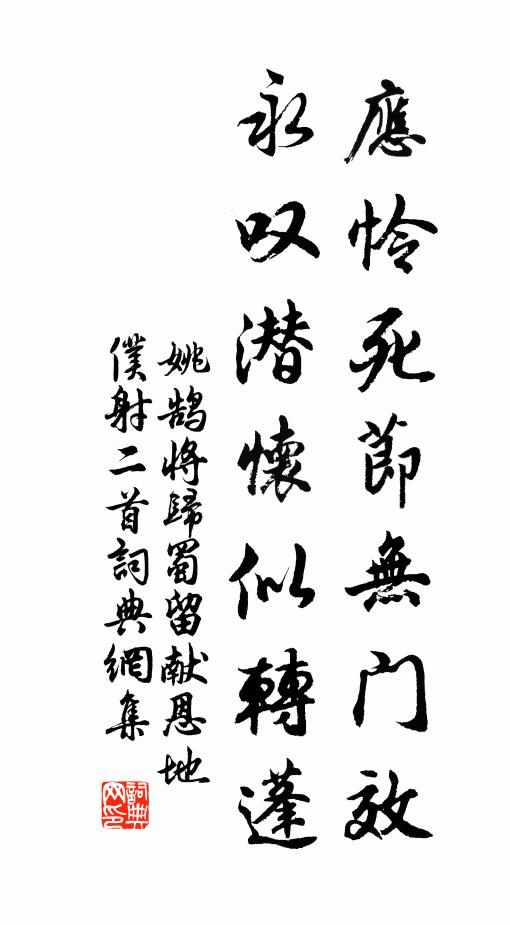 應怜死節無门效
永叹潜懷似轉蓬
姚鹄将歸蜀留献恩地
僕射二首詞典網集
詞典
网印